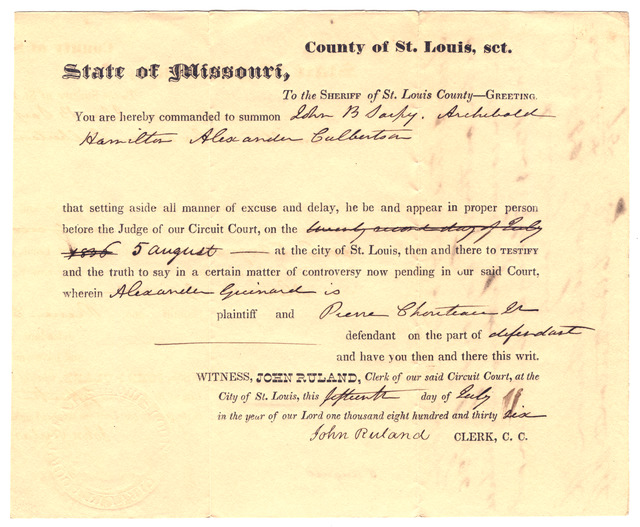 County of St. Louis, sct.
State of Missouri,
To the SHERIFF of St. Louis County—GREETING.
You are hereby commanded to summon John B Sarpy. Archibald
Hamilton Alexander Culbertson
that setting aside all manner of excuse and delay, he be and appear in proper person
before the Judge of our Circuit Court, on the twenty second day of July
1836 5 august — at the city of St. Louis, then and there to TESTIFY
and the truth to say in a certain matter of controversy now pending in our said Court,
wherein Alexander Guinard is
plaintiff and Pierre Chouteau Jr
defendant on the part of defendant
and have you then and there this writ.
WITNESS, JOHN RULAND, Clerk of our said Circuit Court, at the
City of St. Louis, this fifteenth day of July
in the year of our Lord one thousand eight hundred and thirty six
John Ruland CLERK, C. C.